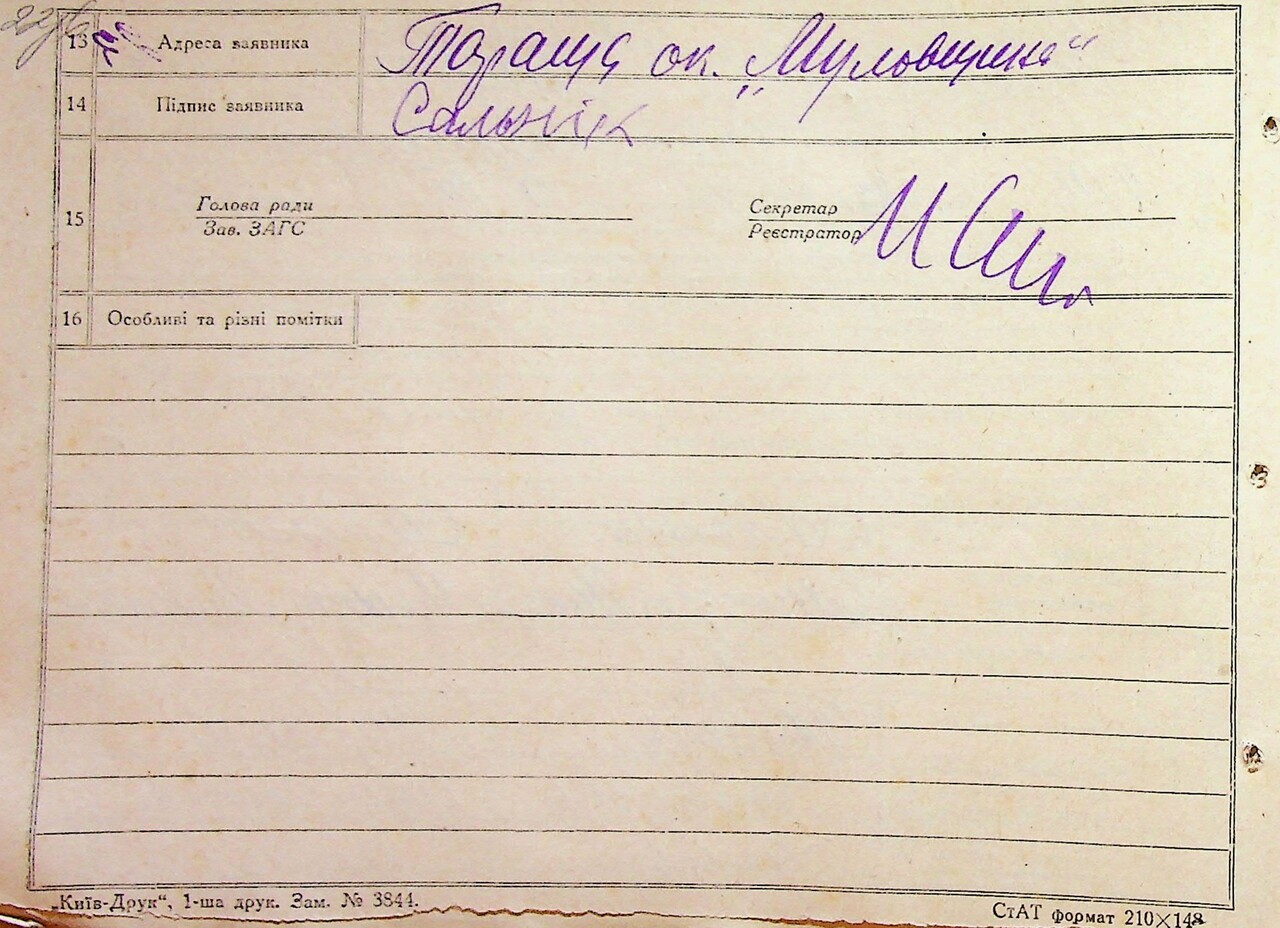 13 Адреса заявника Тараща ок. „Муловщина“
14 Підпис заявника Сальнік
Голова ради Секретар
15
Зав. ЗАГС Реєстратор
16 Особливі та різні помітки
„Київ-Друк“, 1-ша друк. Зам. № 3844.
СтАТ формат 210×148